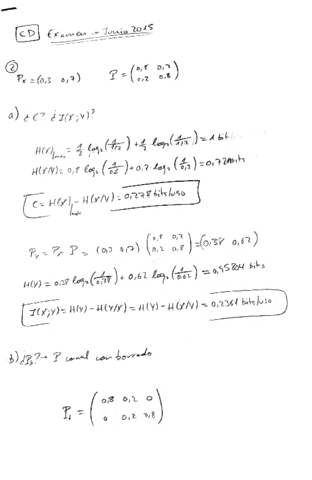 CD Examen - Junio 2015
② Px=(0,3 0,7) P=(0,8 0,2
0,2 0,8)
a) ¿C? ¿I(X;Y)?
H(X)|max = 1/2 log₂(1/1/2) + 1/2 log₂(1/1/2) = 1 bit
H(X/Y) = 0,8 log₂(1/0,8) + 0,2 · log₂(1/0,2) = 0,72 bits
C = H(X)|max - H(X/Y) = 0,278 bits/uso
Py = Px P = (0,3 0,7) · (0,8 0,2
0,2 0,8) = (0,38 0,62)
H(Y) = 0,38 log₂(1/0,38) + 0,62 log₂(1/0,62) = 0,95804 bits
I(X;Y) = H(Y) - H(Y/X) = H(Y) - H(X/Y) = 0,2361 bits/uso
b) ¿P₂? → P canal con borrado
P = (0,8 0,2 0
0 0,2 0,8)